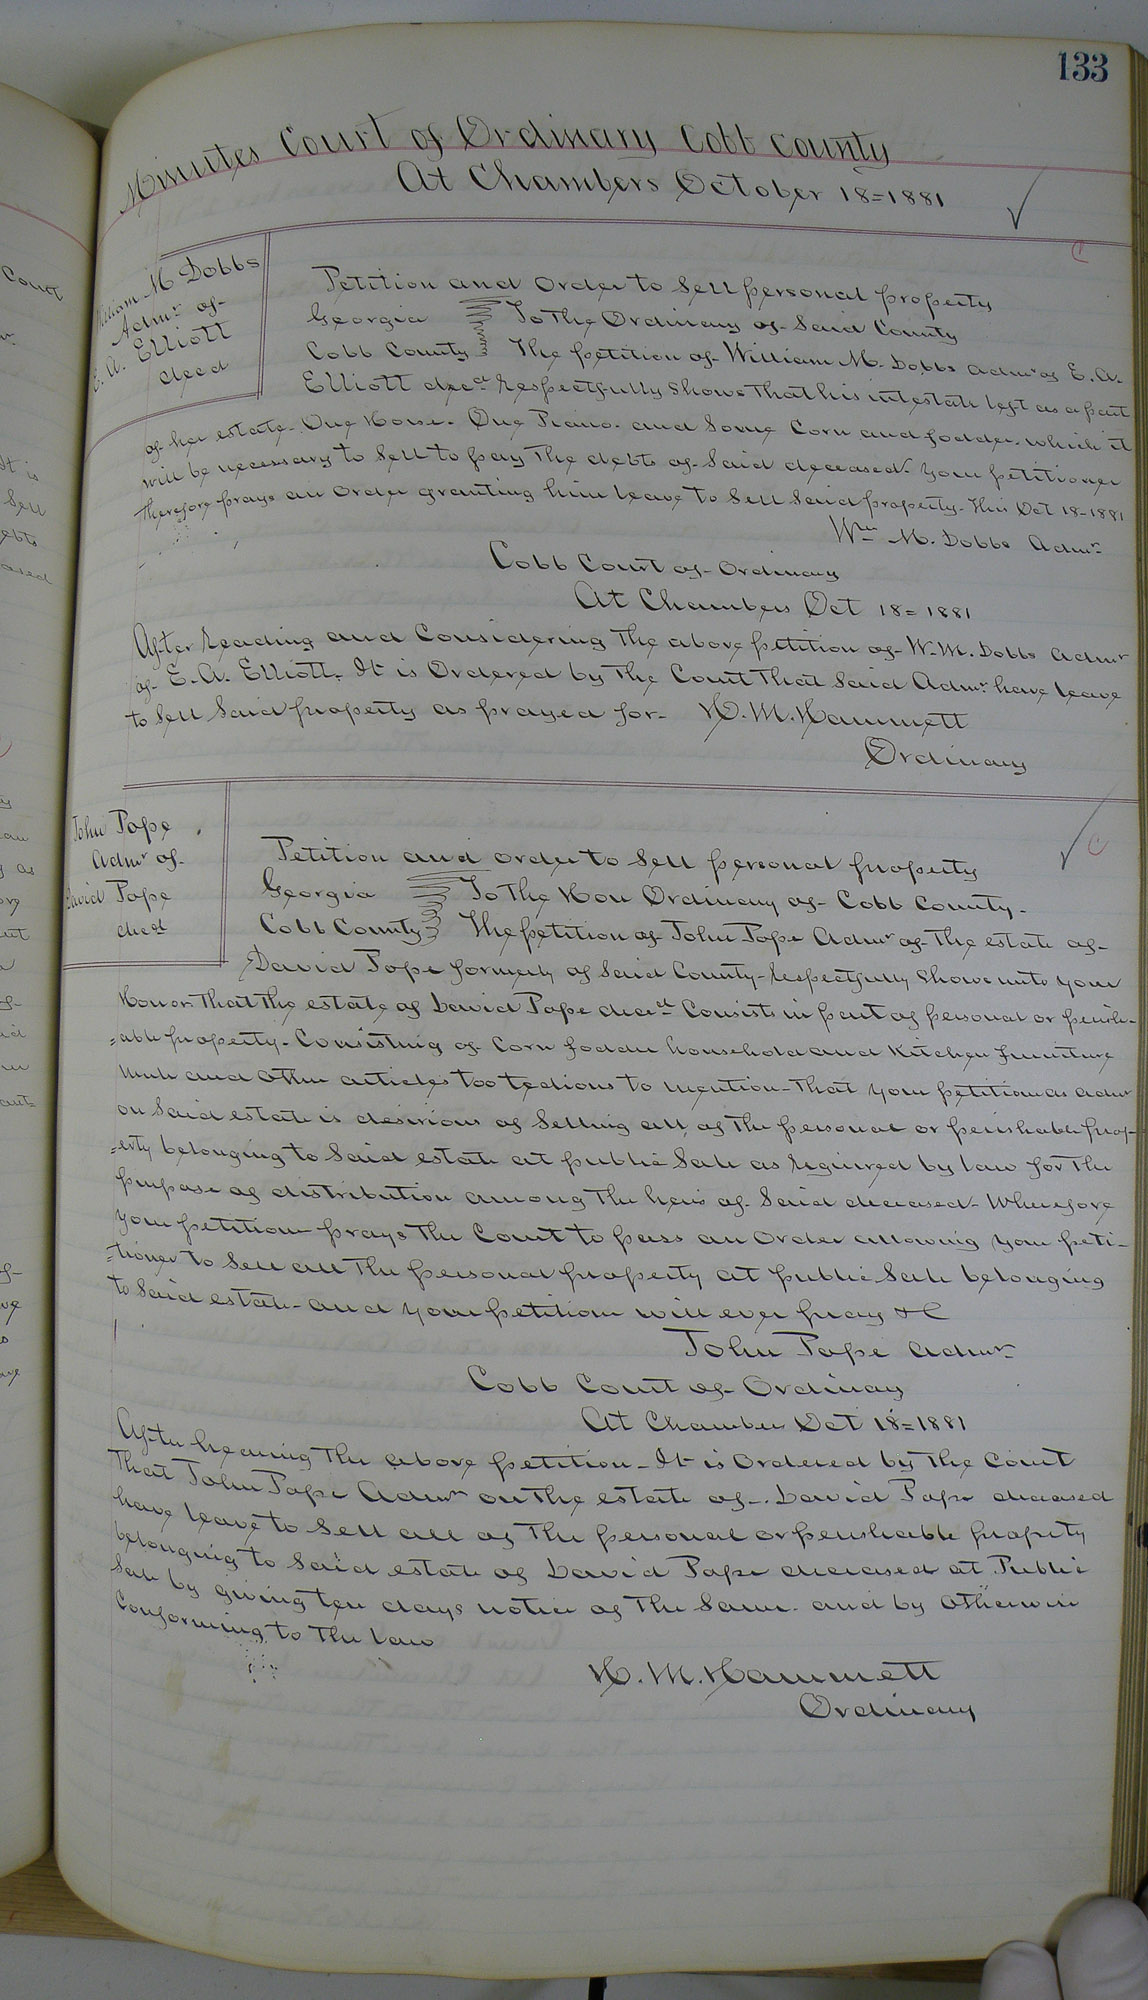 133
Minutes Court of Ordinary Cobb County
At Chambers October 18=1881
William M Dobbs
Admr of
E. A. Elliott
decd
Petition and order to sell personal property
Georgia To The Ordinary of Said County
Cobb County The petition of William M. Dobbs Admr of E. A.
Elliott decd respectfully shows That his intestate left as a part
of her estate. One Horse. One Piano. and some Corn and fodder. which it
will be necessary to sell to pay The debts of said deceased. Your petitioner
therefore prays an order granting him leave to sell said property. This Oct 18-1881
Wm M. Dobbs Admr
Cobb Court of Ordinary
At Chambers Oct 18=1881
After reading and Considering The above petition of W. M. Dobbs Admr
of E. A. Elliott. It is Ordered by The Court That said Admr have leave
to sell said property as prayed for. H. M. Hammett
Ordinary
John Pope
Admr of
David Pope
decd
Petition and order to sell personal property
Georgia To The Hon Ordinary of Cobb County.
Cobb County The petition of John Pope Admr of The estate of
David Pope formerly of Said County respectfully shows unto your
Honor That The estate of David Pope decd Consists in part of personal or perish-
=able property. Consisting of Corn fodder household and Kitchen furniture
Mule and other articles too tedious to mention. That your petition as admr
on said estate is desirious of selling all of The personal or perishable prop-
=erty belonging to said estate at public Sale as required by law for The
purpose of distribution among The heirs of Said deceased. Wherefore
your petition prays The Court to pass an Order allowing your peti-
=tioner to sell all The personal property at public Sale belonging
to said estate. and your petition will ever pray &C
John Pope Admr
Cobb Court of Ordinary
At Chambers Oct 18=1881
After hearing The above petition. It is Ordered by The Court
That John Pope Admr on The estate of David Pope deceased
have leave to sell all of The personal or perishable property
belonging to said estate of David Pope deceased at Public
Sale by giving ten days notice of The Same. and by otherwise
Conforming to The law
H. M. Hammett
Ordinary